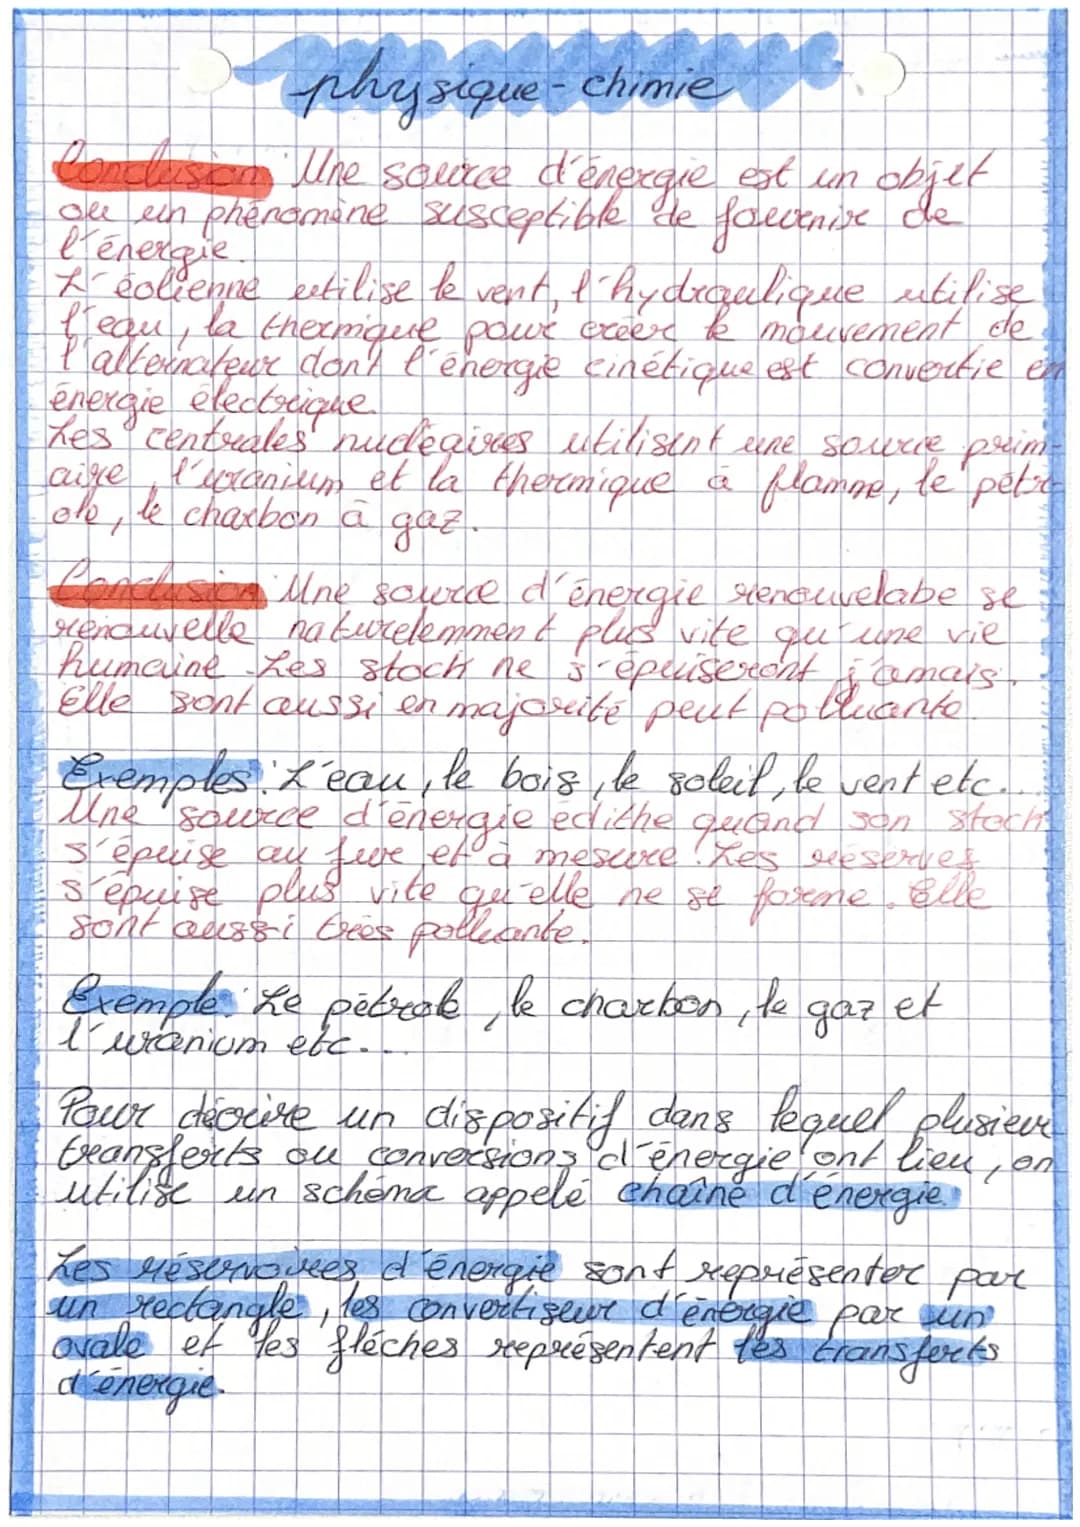 physique - chimie
Conclusion : Une source d'énergie est un objet
ou un phénomène susceptible de fournir de
l'énergie.
L'éolienne utilise le vent, l'hydraulique utilise
l'eau, la thermique pour créer le mouvement de
l'alternateur dont l'énergie cinétique est convertie en
énergie électrique.
Les centrales nucléaires utilisent une source prim-
aire, l'uranium et la thermique à flamme, le pétr-
ole, le charbon à gaz.
Conclusion : Une source d'énergie renouvelabe se
renouvelle naturelemment plus vite qu'une vie
humaine. Les stock ne s'épuiseront j'amais.
Elle sont aussi en majorité peut polluante.
Exemples : L'eau, le bois, le soleil, le vent etc...
Une source d'énergie edithe quand son stock
s'épuise au fur et à mesure. Les réserves
s'épuise plus vite qu'elle ne se forme. Elle
sont aussi très polluante.
Exemple : Le pétrole, le charbon, le gaz et
l'uranium etc...
Pour décrire un dispositif dans lequel plusieur
transferts ou conversions d'énergie ont lieu, on
utilise un schéma appelé chaîne d'énergie.
Les réservoires d'énergie sont représenter par
un rectangle, les convertiseur d'énergie par un
ovale et les fléches représentent les transferts
d'énergie.